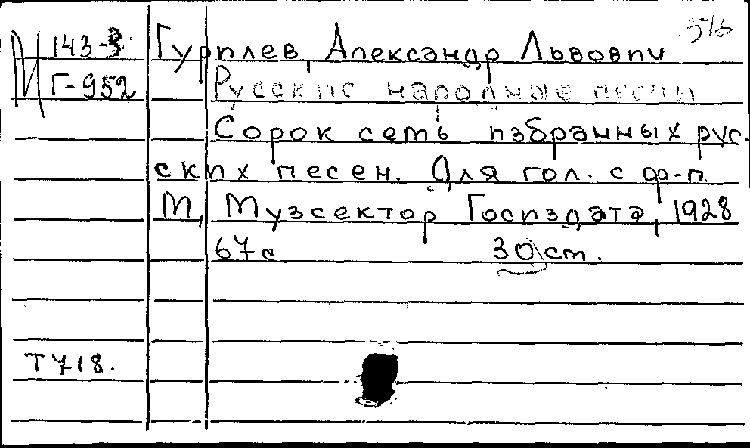 И 143-3
Г-952
Гурилев, Александр Львови
Русские народные песни
Сорок семь избранных рус-
ских песен. Для гол. с ф-п.
М., Музсектор Госиздата, 1928
67с 30 ст.
Т 718.